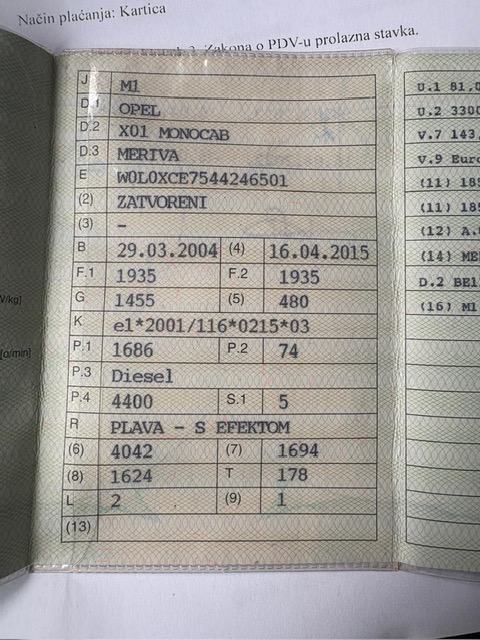 Način plaćanja: Kartica
Zakona o PDV-u prolazna stavka.
J M1
D.1 OPEL
D.2 X01 MONOCAB
D.3 MERIVA
E W0L0XCE7544246501
(2) ZATVORENI
(3) -
B 29.03.2004 (4) 16.04.2015
F.1 1935 F.2 1935
G 1455 (5) 480
K e1*2001/116*0215*03
P.1 1686 P.2 74
P.3 Diesel
P.4 4400 S.1 5
R PLAVA - S EFEKTOM
(6) 4042 (7) 1694
(8) 1624 T 178
L 2 (9) 1
(13)
/kg]
[o/min]
U.1 81,0
U.2 3300
V.7 143,
V.9 Euro
(11) 185
(11) 185
(12) A.
(14) ME
D.2 BE1
(16) M1